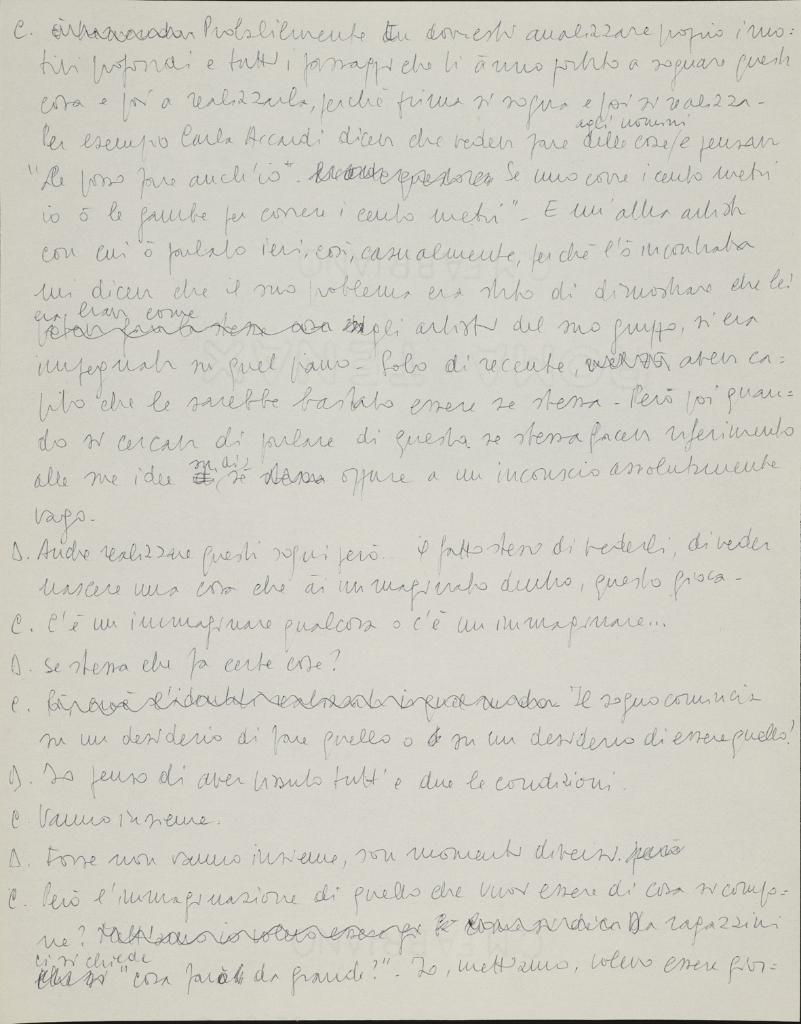 C. Probabilmente tu dovresti analizzare proprio i mo=
tivi profondi e tutti i passaggi che ti ànno portato a sognare questa
cosa e poi a realizzarla, perché prima si sogna e poi si realizza -
agli uomini
Per esempio Carla Accardi diceva che vedeva fare delle cose/e pensava
"Le posso fare anch'io". Se uno corre i cento metri
io ò le gambe per correre i cento metri" - E un'altra artista
con cui ò parlato ieri, così, casualmente, perché l'ò incontrata
mi diceva che il suo problema era stato di dimostrare che lei
era brava come
gli artisti del suo gruppo, si era
impegnata su quel piano - Solo di recente, aveva ca=
pito che le sarebbe bastato essere se stessa - Però poi quan=
do si cercava di parlare di questa se stessa faceva riferimento
alle sue idee su di sé oppure a un inconscio assolutamente
vago.
D. Anche realizzare questi sogni però... il fatto stesso di vederli, di veder
nascere una cosa che ài immaginato dentro, questo gioca -
C. C'è un immaginare qualcosa o c'è un immaginare...
D. Se stessa che fa certe cose?
C. Il sogno comincia
su un desiderio di fare quello o su un desiderio di essere quello?
D. Io penso di aver vissuto tutt'e due le condizioni.
C. Vanno insieme.
D. Forse non vanno insieme, son momenti diversi.
C. Però l'immaginazione di quello che vuoi essere di cosa si compo=
ne? Da ragazzini
ci si chiede
"cosa farò da grande?" - Io, mettiamo, volevo essere gior=